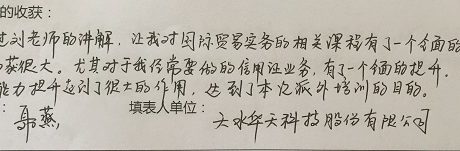 的收获：
过刘老师的讲解，让我对国际贸易实务的相关课程有了一个全面的
获很大。尤其对于我经常要做的信用证业务，有了一个全面的提升，
能力提升起到了很大的作用，达到了本次派外培训的目的。
： 郭燕 填表人单位： 天水华天科技股份有限公司